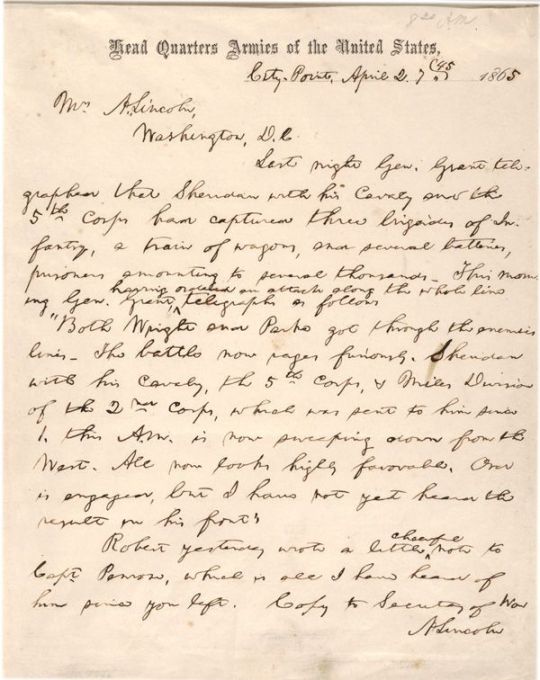 8 20 A.M.
Head Quarters Armies of the United States,
City-Point, April 2. 7 45 1865
Mrs A. Lincoln,
Washington, D.C.
Last night Gen. Grant tele-
graphed that Sheridan with his Cavalry and the
5th Corps had captured three brigades of In-
fantry, a train of wagons, and several batteries,
prisoners amounting to several thousands - This morn-
having ordered an attack along the whole line
ing Gen. Grant, telegraphs as follows
"Both Wright and Parke got through the enemies
lines - The battle now rages furiously. Sheridan
with his Cavalry, the 5th Corps, & Miles Division
of the 2nd Corps, which was sent to him since
1. this A.M. is now sweeping down from the
West. All now looks highly favorable. Ord
is engaged, but I have not yet heard the
result on his front"
cheerful
Robert yesterday wrote a little note to
Capt Penrose, which is all I have heard of
him since you left. Copy to Secretary of War
A. Lincoln